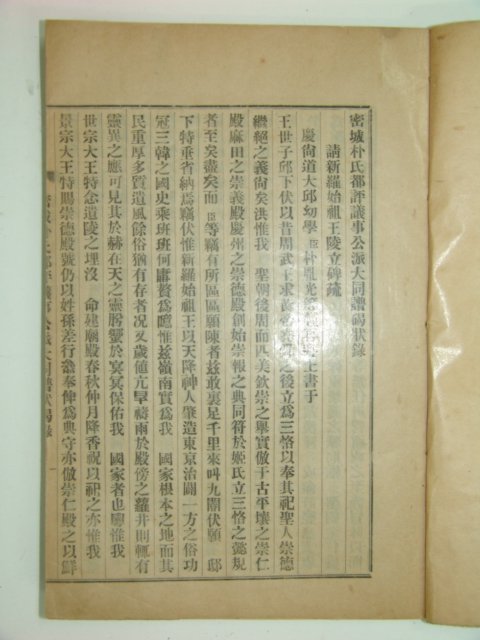 密城朴氏都評議事公派大同譜碣狀錄
請新羅始祖王陵立碑疏
慶尙道大邱幼學 臣 朴胤光 上書于
王世子邸下伏以昔周武王求 之後立爲三恪以奉其祀聖人崇德
繼絕之義尙矣洪惟我 聖朝後周而匹美欽崇之舉實倣于古平壤之崇仁
殿麻田之崇義殿慶州之崇德殿創始崇報之典同符於姬氏立三恪之懿規
者至矣盡矣而 臣 等竊有所區區願陳者玆敢裹足千里來叫九閽伏願 邸
下特垂省納焉竊伏惟新羅始祖王以天降神人肇造東京治闢一方之俗功
冠三韓之國史乘班班何庸贅爲噫惟玆嶺南實爲我 國家根本之地而其
民重厚多質遺風餘俗猶有存者况夂歲値亢旱禱雨於殿傍之蘿井則輒有
靈異之應可見其於赫在天之靈肹蠁於冥冥保佑我 國家者也廖惟我
世宗大王特念遺陵之埋沒 命建廟殿春秋仲月降香祝以祀之亦惟我
景宗大王特賜崇德殿號仍以姓孫差行 奉俾爲典守亦倣崇仁殿之以鮮